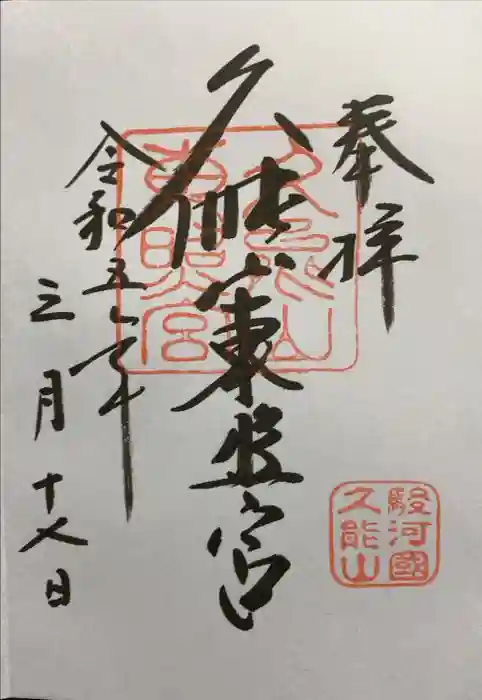 奉拝
久能山東照宮
令和五年
三月十八日
久能山
東照宮
駿河國
久能山